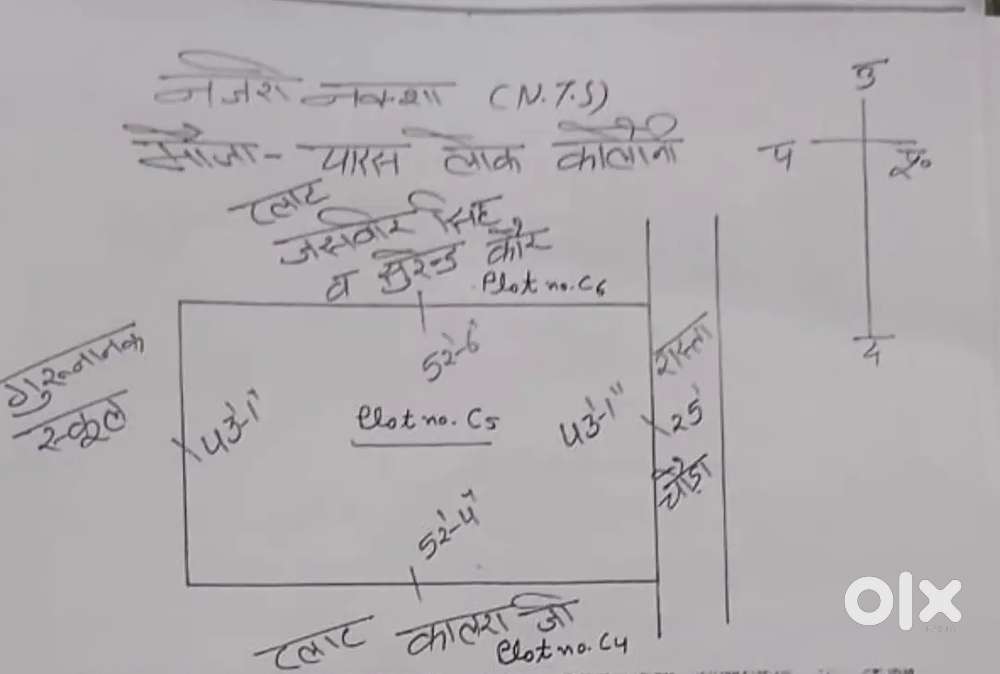 नजरी नक्शा (N.T.S)
मौजा- पारस लोक कॉलोनी
उ
प
पू०
द
प्लाट
जसवीर सिंह
व सुरेन्द्र कौर
Plot no. C6
गुरुनानक
स्कूल
52'-6"
43'-1"
Plot no. C5
43'-1"
रास्ता
25'
चौड़ा
52'-4"
प्लाट कालरा जी
Plot no. C4
olx